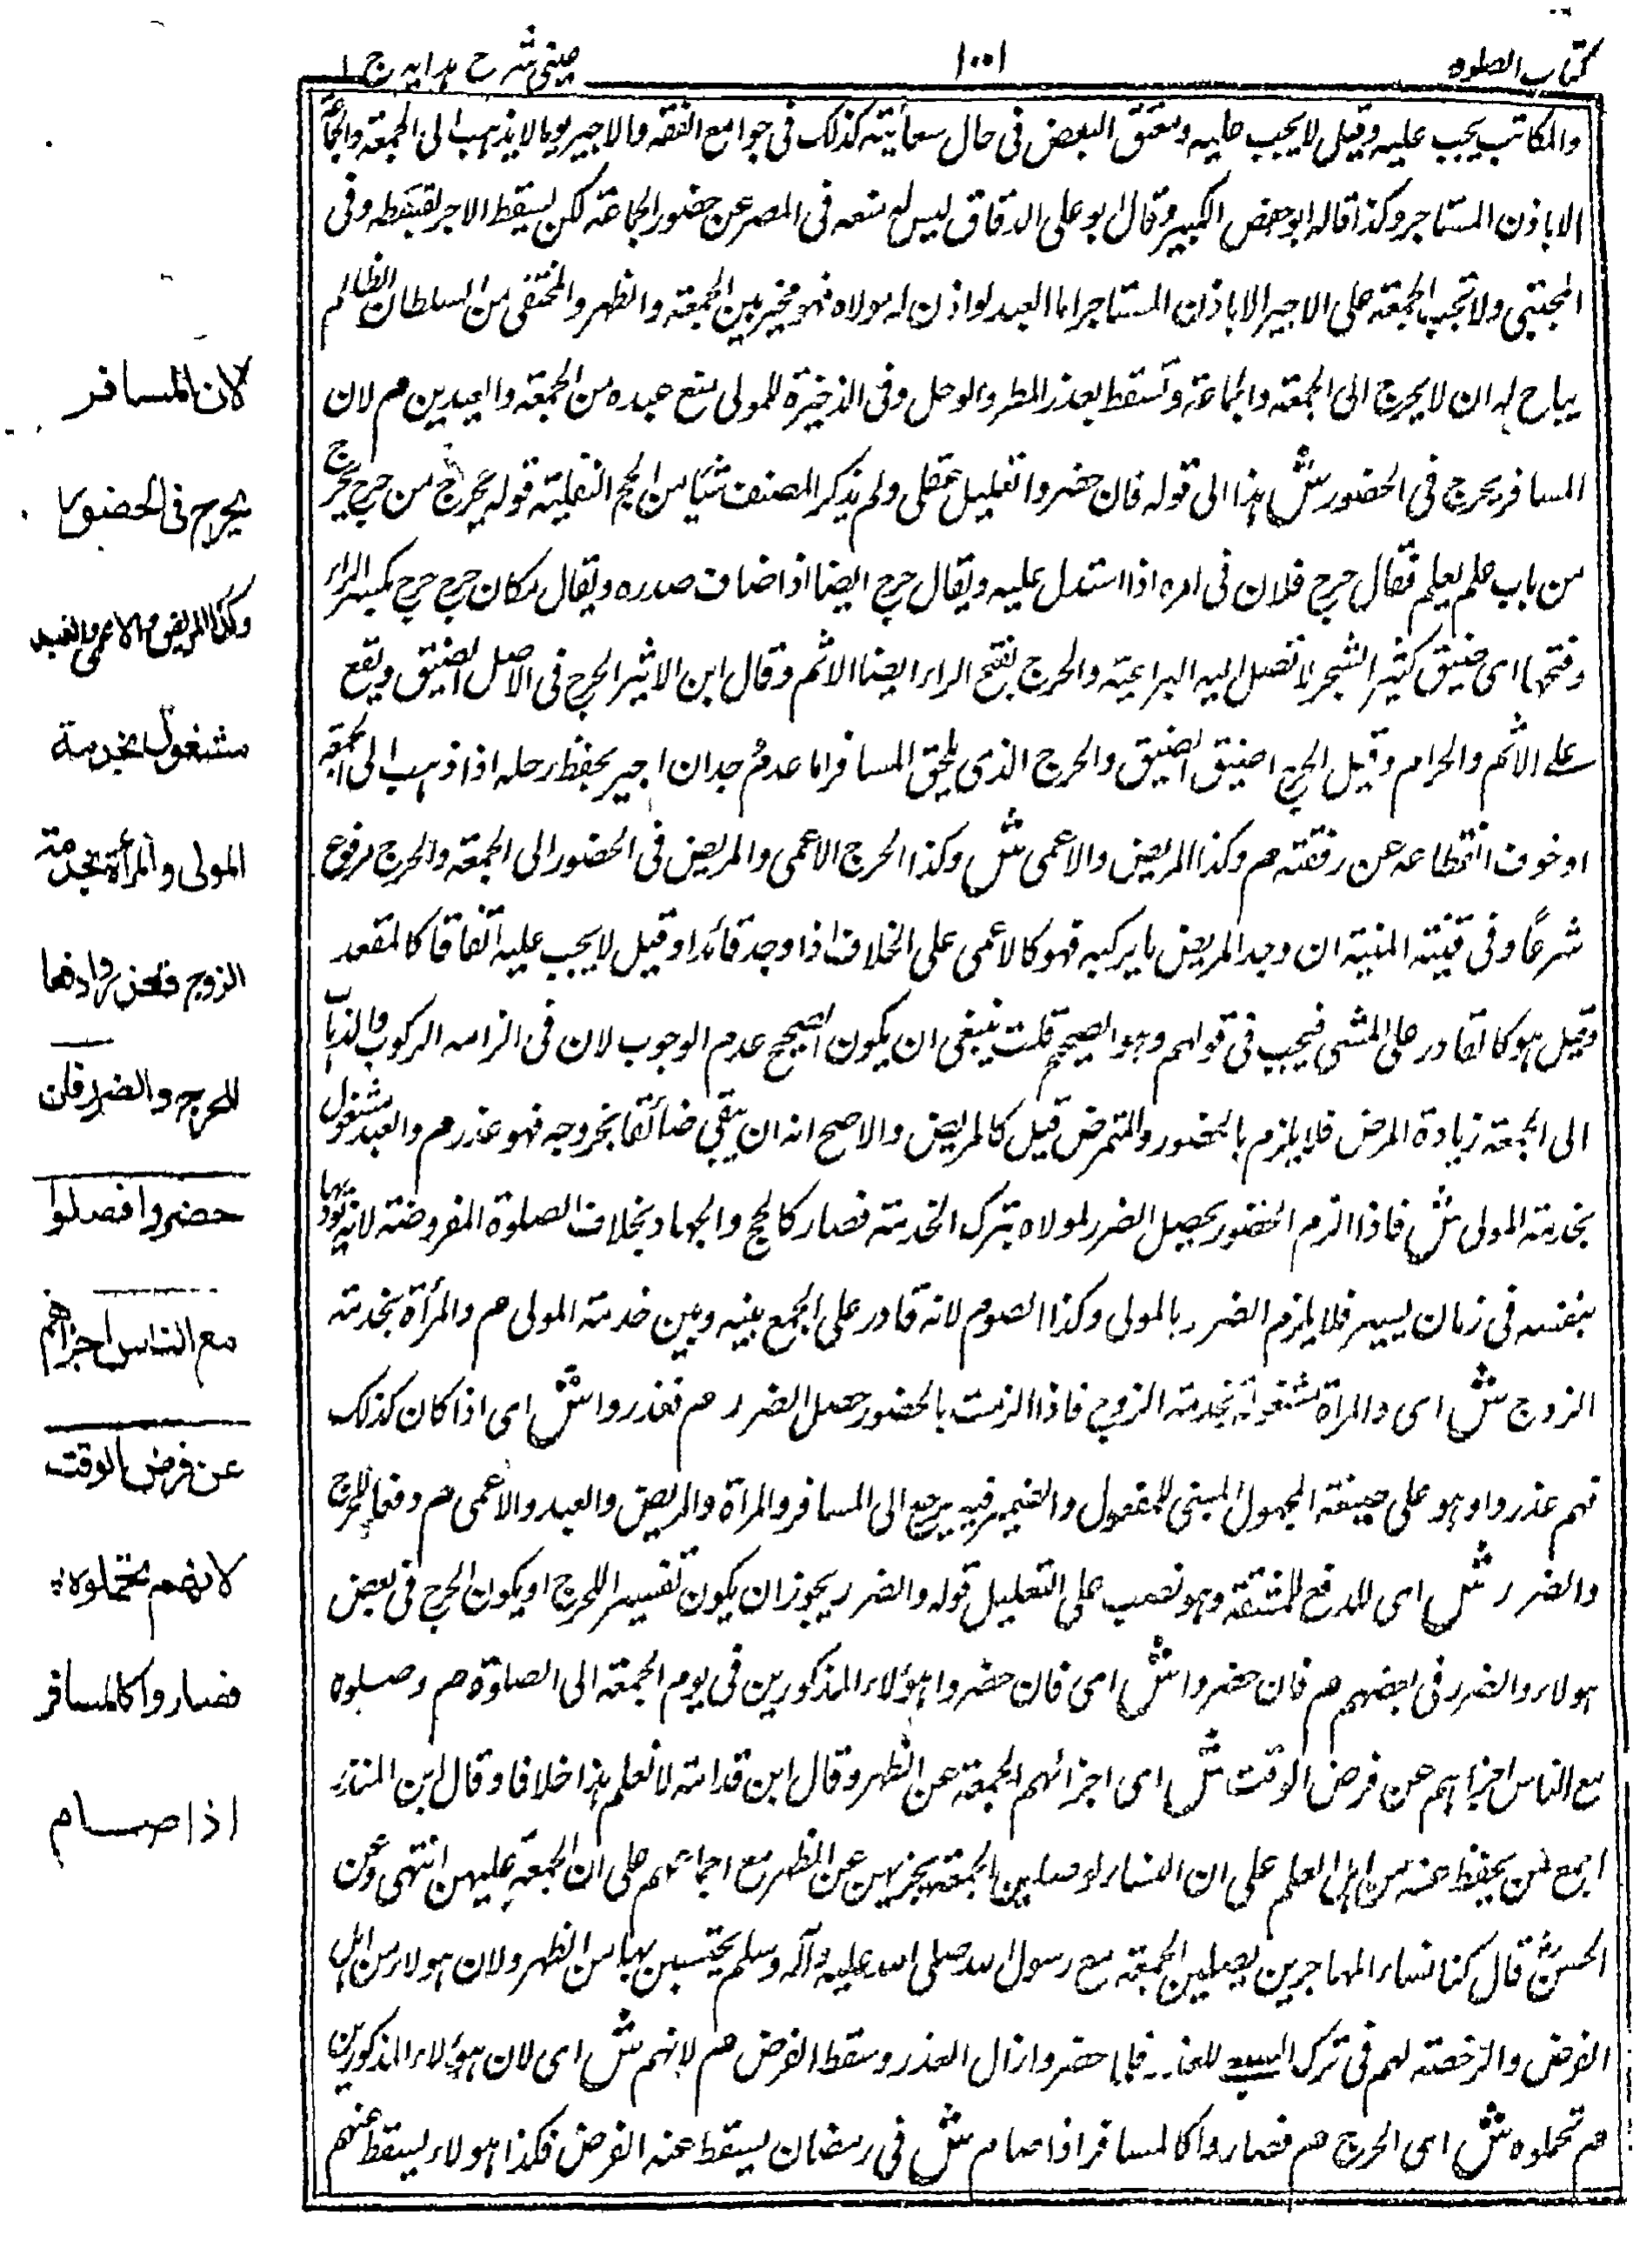 كتاب الصلوه
١٠٠١
عينى شرح هدايه ج ١
والمكاتب يجب عليه وقيل لا يجب عليه ومعتق البعض فى حال سعايته كذلك فى جوامع الفقه والاجير يوما لا يذهب الى الجمعة والجماعة
الا باذن المستاجر وكذا قاله ابو حفص الكبير وقال ابو على الدقاق ليس له منعه فى المصر عن حضور الجماعة لكن يسقط الاجر بقسطه وفى
المجتبى ولا تجب الجمعة على الاجير الا باذن المستاجر اما العبد لو اذن له مولاه فهو مخير بين الجمعة والظهر والمختفى من السلطان الظالم
يباح له ان لا يخرج الى الجمعة والجماعة وتسقط بعذر المطر والوحل وفى الذخيرة للمولى منع عبده من الجمعة والعيدين م لان
المسافر يحرج فى الحضور ش هذا الى قوله فان حضروا تعليل عقلى ولم يذكر المصنف شيئا من الحجج النقلية قوله يحرج من حرج يحرج
من باب علم يعلم فقال حرج فلان فى امره اذا استدل عليه ويقال حرج ايضا اذا ضاف صدره ويقال مكان حرج حرج بكسر الراء
وفتحها اى ضيق كثير الشجر لا تصل اليه الراعية والحرج بفتح الراء ايضا الاثم وقال ابن الاثير الحرج فى الاصل الضيق ويقع
على الاثم والحرام وقيل الحرج اضيق الضيق والحرج الذى يلحق المسافر اما عدم وجدان اجير يحفظ رحله اذا ذهب الى الجمعة
او خوف انقطاعه عن رفقته م وكذا المريض والاعمى ش وكذا الحرج الاعمى والمريض فى الحضور الى الجمعة والحرج مرفوع
شرعًا وفى قنية المنية ان وجد المريض ما يركبه فهو كالاعمى على الخلاف اذا وجد قائدا وقيل لا يجب عليه اتفاقا كالمقعد
وقيل هو كالقادر على المشى فيجب فى قولهم وهو الصحيح قلت ينبغى ان يكون الصحيح عدم الوجوب لان فى الزامه الركوب والذهاب
الى الجمعة زيادة المرض فلا يلزم بالحضور والمتمرض قيل كالمريض والاصح انه ان يبقى ضائعا بخروجه فهو عذر م والعبد مشغول
بخدمة المولى ش فاذا الزم الحضور يحصل الضرر لمولاه بترك الخدمة فصار كالحج والجهاد بخلاف الصلوة المفروضة لانه يؤديها
بنفسه فى زمان يسير فلا يلزم الضرر بالمولى وكذا الصوم لانه قادر على الجمع بينه وبين خدمة المولى م والمرأة بخدمة
الزوج ش اى والمراة مشغولة بخدمة الزوج فاذا الزمت بالحضور حصل الضرر م فعذروا ش اى اذا كان كذلك
فهم عذروا وهو على صيغة المجهول المبنى للمفعول والضمير فيه يرجع الى المسافر والمراة والمريض والعبد والاعمى م دفعا للحرج
والضرر ش اى للدفع للمشقة وهو نصب على التعليل قوله والضرر يجوز ان يكون تفسيرا للحرج او يكون الحرج فى بعض
هولاء والضرر فى بعضهم م فان حضروا ش اى فان حضروا هؤلاء المذكورين فى يوم الجمعة الى الصلوة م وصلوه
مع الناس اجزاهم عن فرض الوقت ش اى اجزائهم الجمعة عن الظهر وقال ابن قدامة لا نعلم هذا خلافا وقال ابن المنذر
اجمع من يحفظ عنه من اهل العلم على ان النساء لو صلين الجمعة يجزيهن عن الظهر مع اجماعهم على ان الجمعة عليهن انتهى وعن
الحسن قال كنا نساء المهاجرين يصلين الجمعة مع رسول الله صلى الله عليه وآله وسلم يحتسبن بها من الظهر ولان هولاء من اهل
الفرض والرخصة لهم فى ترك فلما حضروا زال العذر وسقط الفرض م لانهم ش اى لان هؤلاء المذكورين
م تحملوه ش اى الحرج م فصاروا كالمسافر اذا صام ش فى رمضان يسقط عنه الفرض فكذا هولاء يسقط عنهم
لان المسافر
يحرج فى الحضور
وكذا المريض والاعمى والعبد
مشغول بخدمة
المولى والمرأة بخدمة
الزوج فعذروا دفعا
للحرج والضرر فان
حضروا فصلوا
مع الناس اجزاهم
عن فرض الوقت
لانهم تحملوه
فصاروا كالمسافر
اذا صام